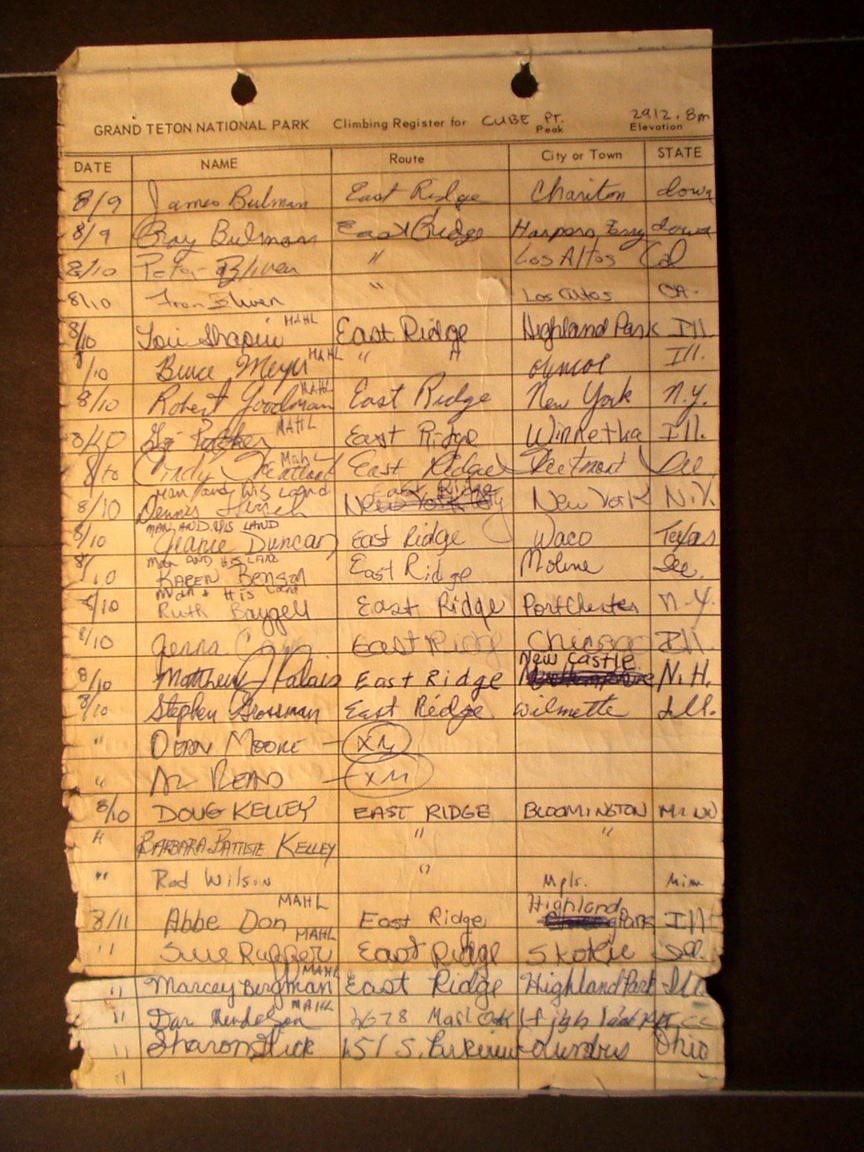 GRAND TETON NATIONAL PARK Climbing Register for CUBE PT. 2912.8m
Peak Elevation
DATE NAME Route City or Town STATE
8/9 James Bulman East Ridge Chariton Iowa
8/9 Ray Bulman East Ridge Harpers Ferry Iowa
8/10 Peter Bliven " Los Altos Cal
8/10 Fran Bliven " Los Altos CA.
8/10 Lori Shapiro MAHL East Ridge Highland Park Ill.
8/10 Bruce Meyer MAHL " " Ill.
8/10 Robert Goodman MAHL East Ridge New York N.Y.
8/10 MAHL East Ridge Winnetka Ill.
8/10 Cindy MAHL East Ridge Ill
Man and his Land East Ridge
8/10 Dennis Hirsch New York City New York N.Y.
MAN AND HIS LAND
8/10 Jeanie Duncan East Ridge Waco Texas
MAN AND HIS LAND
8/10 KAREN Benson East Ridge Moline Ill.
Man + His Land
8/10 Ruth Baygell East Ridge Portchester N.Y.
8/10 Jenna East Ridge Chicago Ill.
New Castle
8/10 Matthew J Palais East Ridge N.H.
8/10 Stephen Grossman East Ridge Wilmette Ill.
" DEAN MOORE XM
" AL READ XM
8/10 DOUG KELLEY EAST RIDGE BLOOMINGTON MINN
" BARBARA BATTISTE KELLEY " "
" Rod Wilson " Mpls. Minn
MAHL Highland
8/11 Abbe Don East Ridge Park Ill
" Sue Rupper MAHL East Ridge Skokie Ill.
" Marcey Bergman MAHL East Ridge Highland Park Ill
" Dan Mendelson MAHL 2678
" Sharon Glick 151 S. Columbus Ohio
"